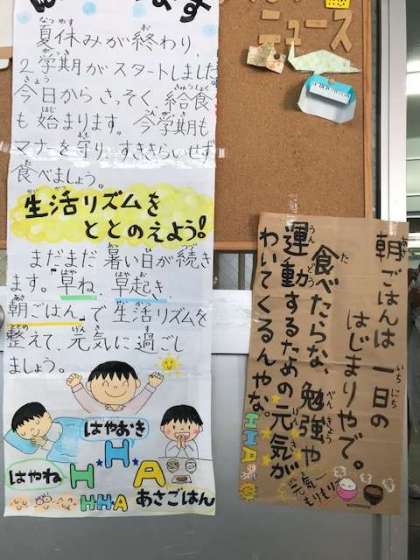 ニュース
夏休みが終わり、
2学期がスタートしました
今日からさっそく、給食
も始まります。今学期も
マナーを守り、すききらいせず
食べましょう。
生活リズムを
ととのえよう!
まだまだ暑い日が続き
ます。早ね、早起き
朝ごはんで生活リズムを
整えて、元気に過ごし
ましょう。
はやおき
はやね
H・H・A
あさごはん
HHA
朝ごはんは一日の
はじまりやで。
食べたらな、勉強や
運動するための元気が
わいてくるんやな。
HHA
元気
もりもり